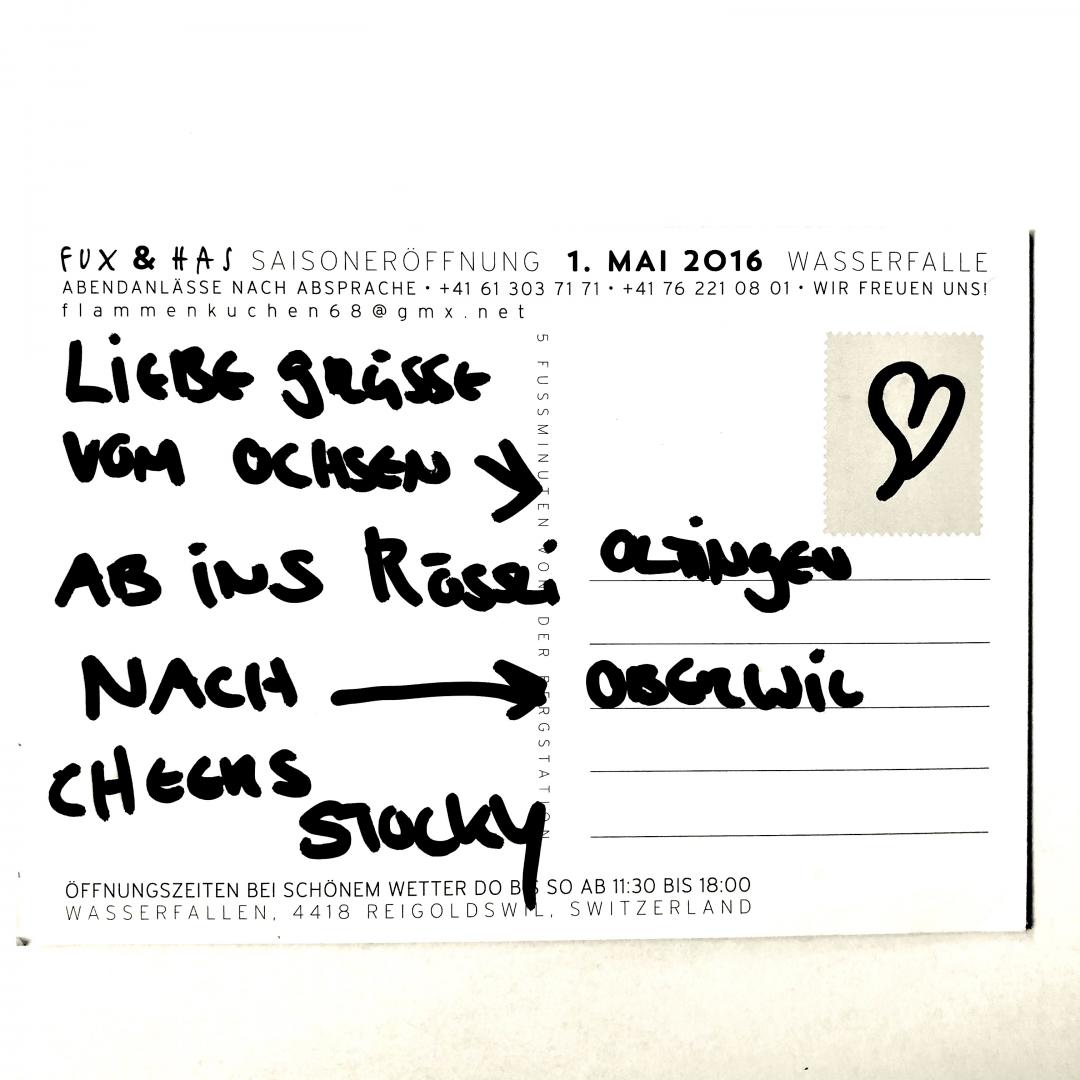 FUX & HAS SAISONERÖFFNUNG 1. MAI 2016 WASSERFALLE
ABENDANLÄSSE NACH ABSPRACHE • +41 61 303 71 71 • +41 76 221 08 01 • WIR FREUEN UNS!
flammenkuchen68@gmx.net
LiEBE GRüSSE
VOM OCHSEN →
OLTiNGEN
AB iNS Rössli
NACH → OBERWiL
CHEERS
STOCKY
5 FUSSMINUTEN VON DER BERGSTATION
ÖFFNUNGSZEITEN BEI SCHÖNEM WETTER DO BIS SO AB 11:30 BIS 18:00
WASSERFALLEN, 4418 REIGOLDSWIL, SWITZERLAND